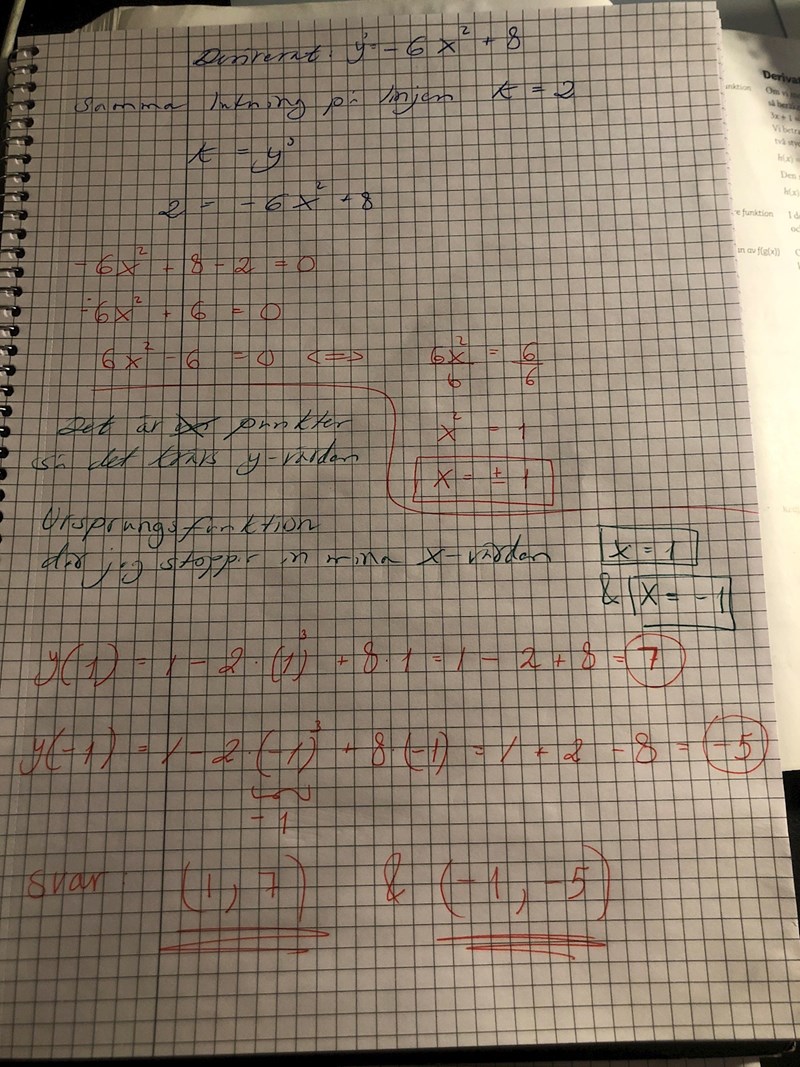 Deriverat: y' = -6x² + 8
samma lutning på linjen k = 2
k = y'
2 = -6x² + 8
-6x² + 8 - 2 = 0
-6x² + 6 = 0
6x² - 6 = 0 <=> 6x²/6 = 6/6
x² = 1
x = ± 1
Det är punkter
så det krävs y-värden
Ursprungsfunktion
där jag stoppar in mina x-värden
x = 1
& x = -1
y(1) = 1 - 2 · (1)³ + 8 · 1 = 1 - 2 + 8 = 7
y(-1) = 1 - 2 · (-1)³ + 8 · (-1) = 1 + 2 - 8 = -5
-1
svar: (1, 7) & (-1, -5)
Deriva
funktion
Om
så
3x + 1
Vi
två
h(x)
Den
h(x)
e funktion I d
oc
in av f(g(x))